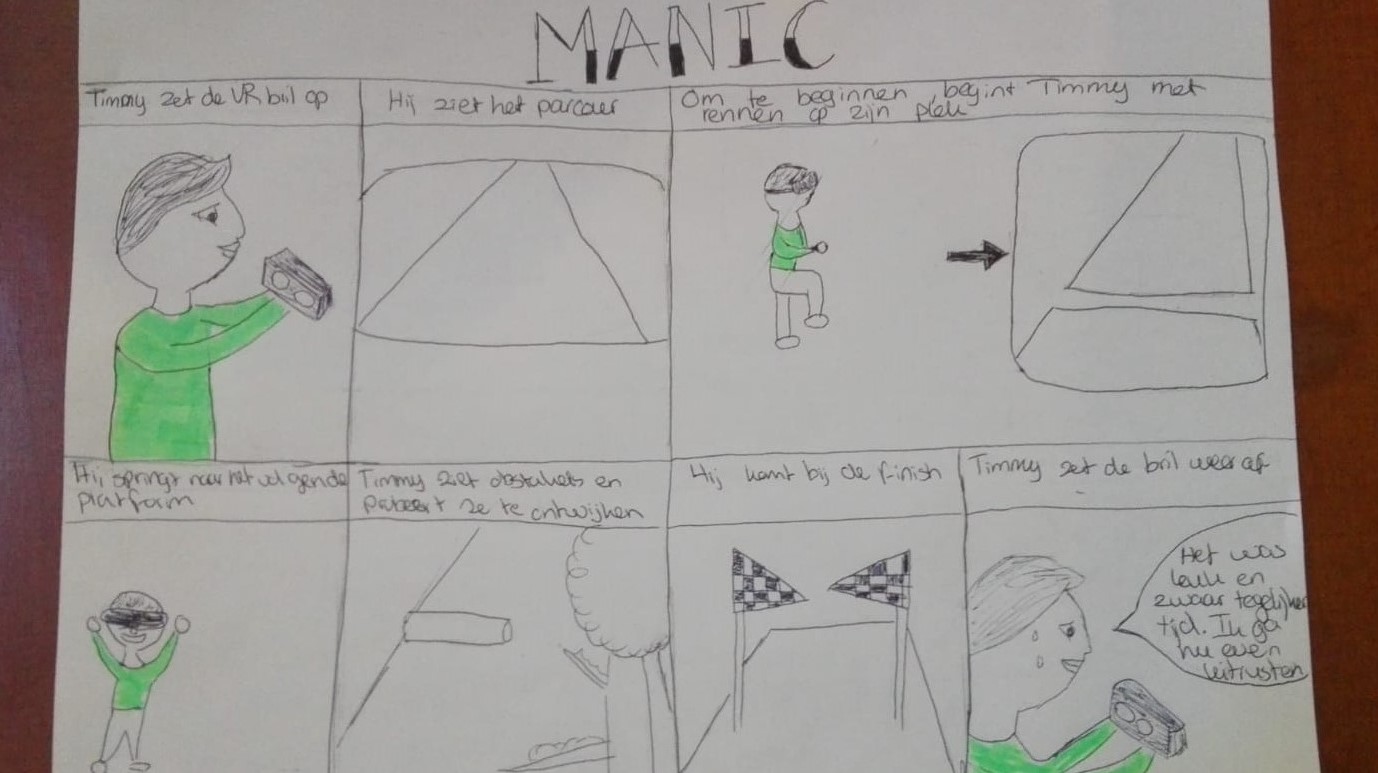 MANIC
Timmy zet de VR bril op
Hij ziet het parcour
Om te beginnen, begint Timmy met
rennen op zijn plek
Hij springt naar het volgende
platform
Timmy ziet obstakels en
probeert ze te ontwijken
Hij komt bij de finish
Timmy zet de bril weer af
Het was
leuk en
zwaar tegelijker
tijd. Ik ga
nu even
uitrusten